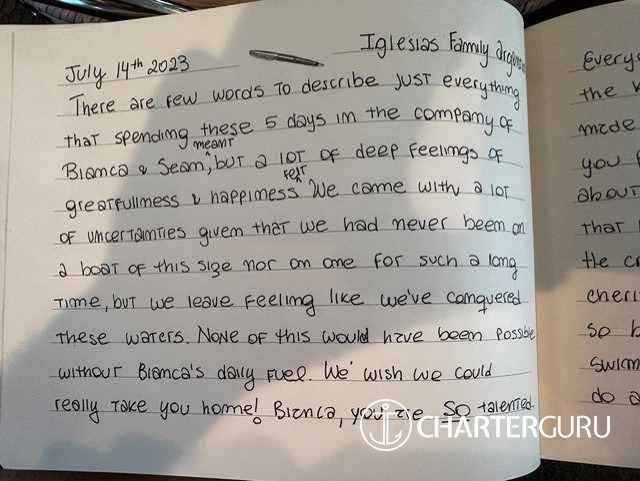 Iglesias Family
July 14th 2023
There are few words to describe just everything
that spending these 5 days in the company of
meant
Bianca & Sean, but a lot of deep feelings of
felt
greatfullness & happiness We came with a lot
of uncertainties given that we had never been on
a boat of this size nor on one for such a long
time, but we leave feeling like we've conquered
these waters. None of this would have been possible
without Bianca's daily fuel. We wish we could
really take you home! Bianca, you are so talented.
Every
the
made
you
about
that
the
cheri
so
swim
do a
CHARTERGURU